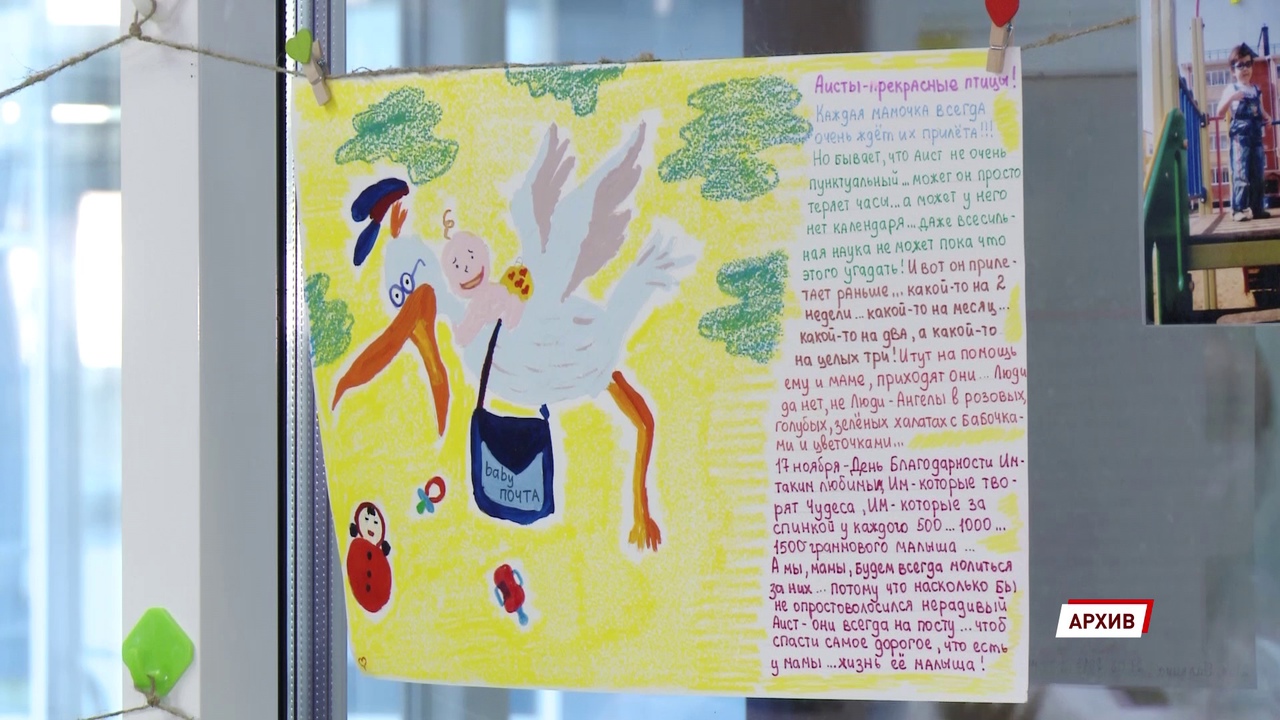 Аисты-прекрасные птицы!
Каждая мамочка всегда
очень ждёт их прилёта!!!
Но бывает, что Аист не очень
пунктуальный... может он просто
терлет часы... а может у него
нет календаря... даже всесиль-
ная наука не может пока что
этого угадать! И вот он приле-
тает раньше... какой-то на 2
недели... какой-то на месяц...
какой-то на два, а какой-то
на целых три! И тут на помощь
ему и маме, приходят они... Люди
да нет, не Люди - Ангелы в розовых,
голубых, зелёных халатах с бабочка-
ми и цветочками...
17 ноября - День Благодарности Им-
таким любимым, Им - которые тво-
рят Чудеса, ИМ - которые за
спинкой у каждого 500... 1000...
1500 граммового малыша...
А мы, мамы, будем всегда молиться
за них... потому что насколько бы
не опростоволосился нерадивый
Аист - они всегда на посту... чтоб
спасти самое дорогое, что есть
у мамы... жизнь её малыша!
baby
ПОЧТА
АРХИВ